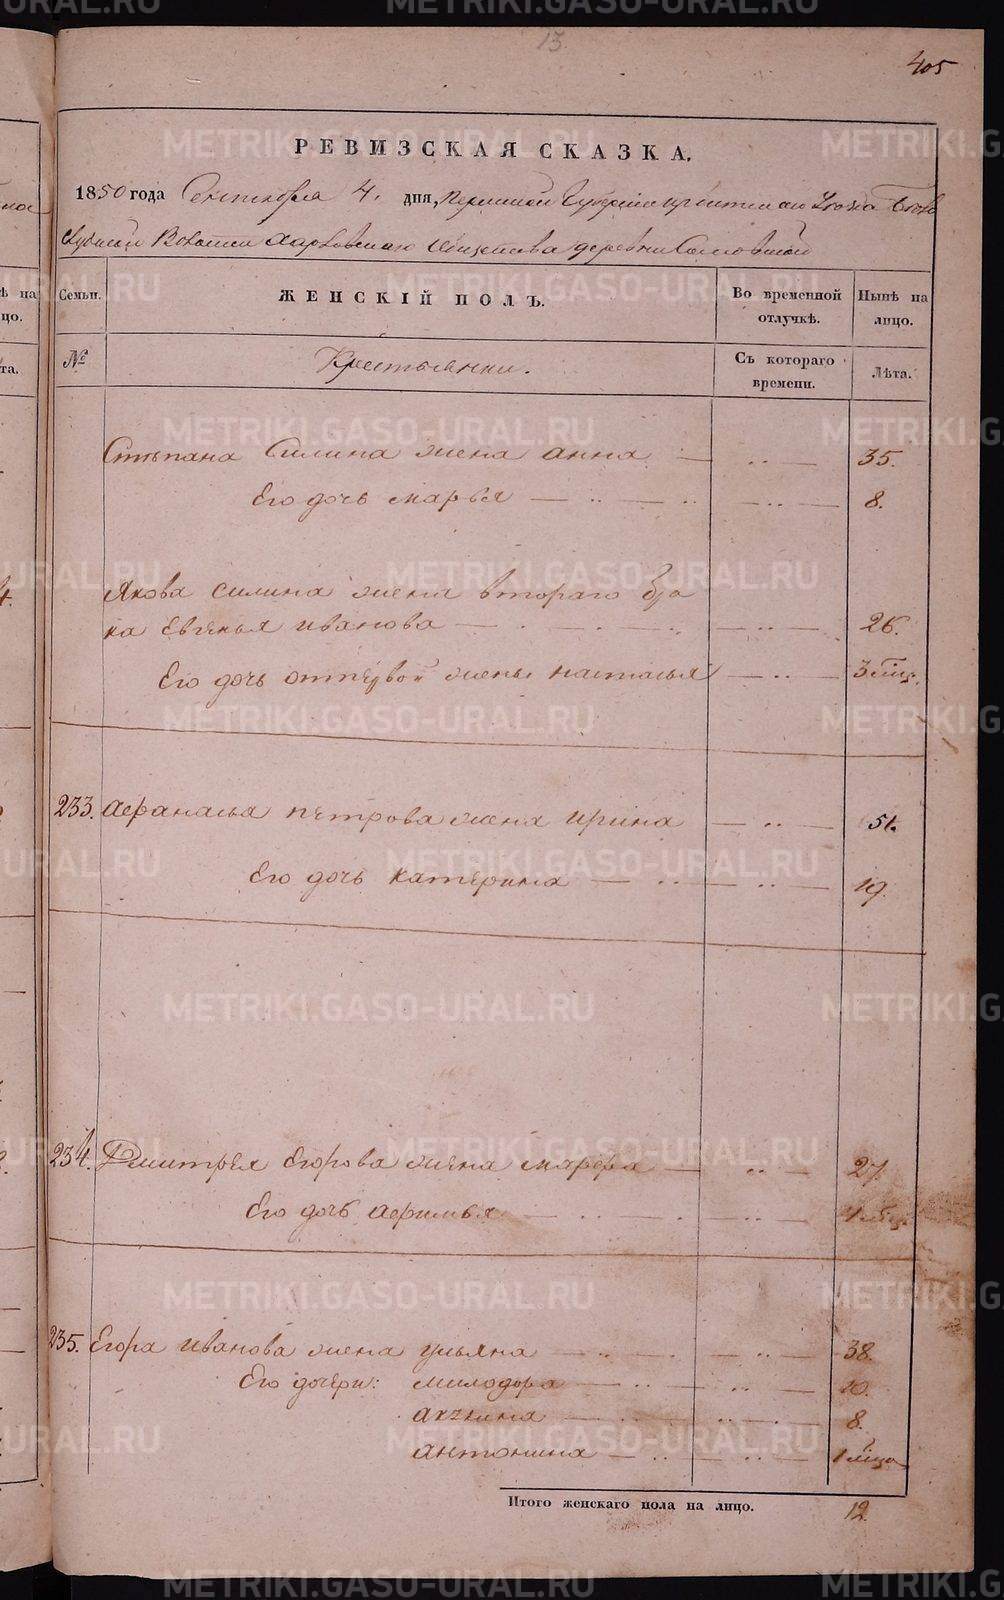 13
405
РЕВИЗСКАЯ СКАЗКА.
1850 года Сентября 4. дня, Пермской Губернии Ирбитскаго Уезда
Волости Харловскаго Общества деревни
Семьи.
ЖЕНСКІЙ ПОЛЪ.
Во временной отлучкѣ.
Нынѣ на лицо.
№
Крестьянки.
Съ котораго времени.
Лѣта.
Степана Силина жена анна 35.
Его дочь марья 8.
Якова силина жена втораго бра
ка Евгенья иванова 26.
Его дочь отпервой жены наталья 3 мѣц.
233. Афанасья петрова жена ирина 51.
Его дочь катерина 19.
234. Дмитрея Егорова жена марфа 27.
Его дочь афимья
235. Егора иванова жена ульяна 38.
Его дочери: милодора 10.
акилина 8.
антонина 1 мѣца
Итого женскаго пола на лицо. 12.
METRIKI.GASO-URAL.RU